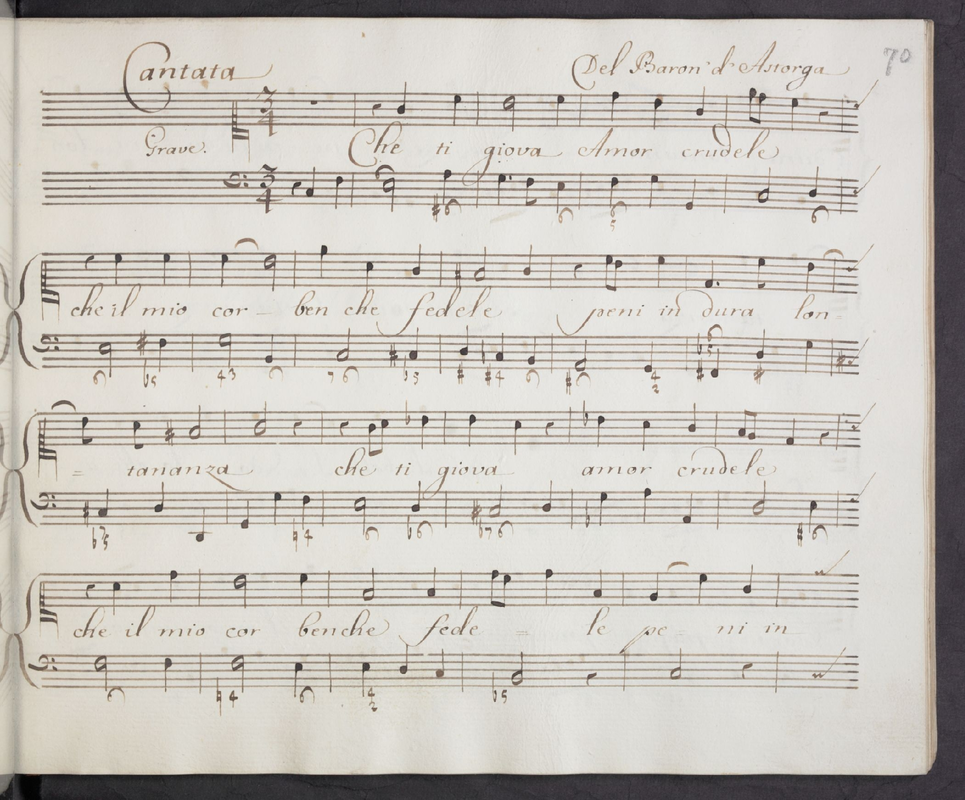 Cantata Del Baron d'Astorga 70
Grave. Che ti giova Amor crudele
che il mio cor - ben che fedele peni in dura lon -
= tananza che ti giova amor crudele
che il mio cor benche fede = le pe ni in